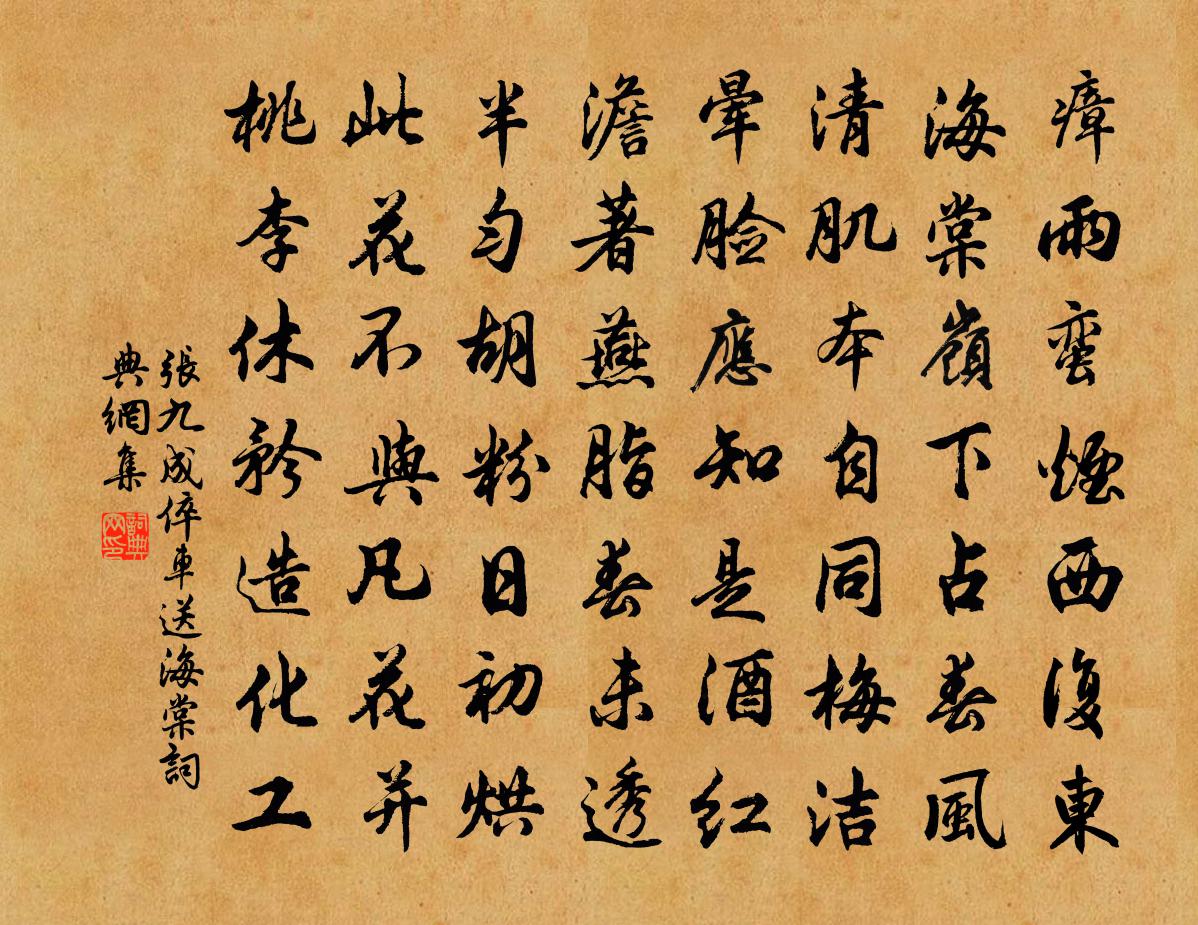 瘴雨蛮煙西復東
海棠嶺下占春風
清肌本自同梅洁
暈脸應知是酒红
澹著燕脂春未透
半匀胡粉日初烘
此花不與凡花并
桃李休矜造化工
張九成倅車送海棠
詞典網集
詞典网印